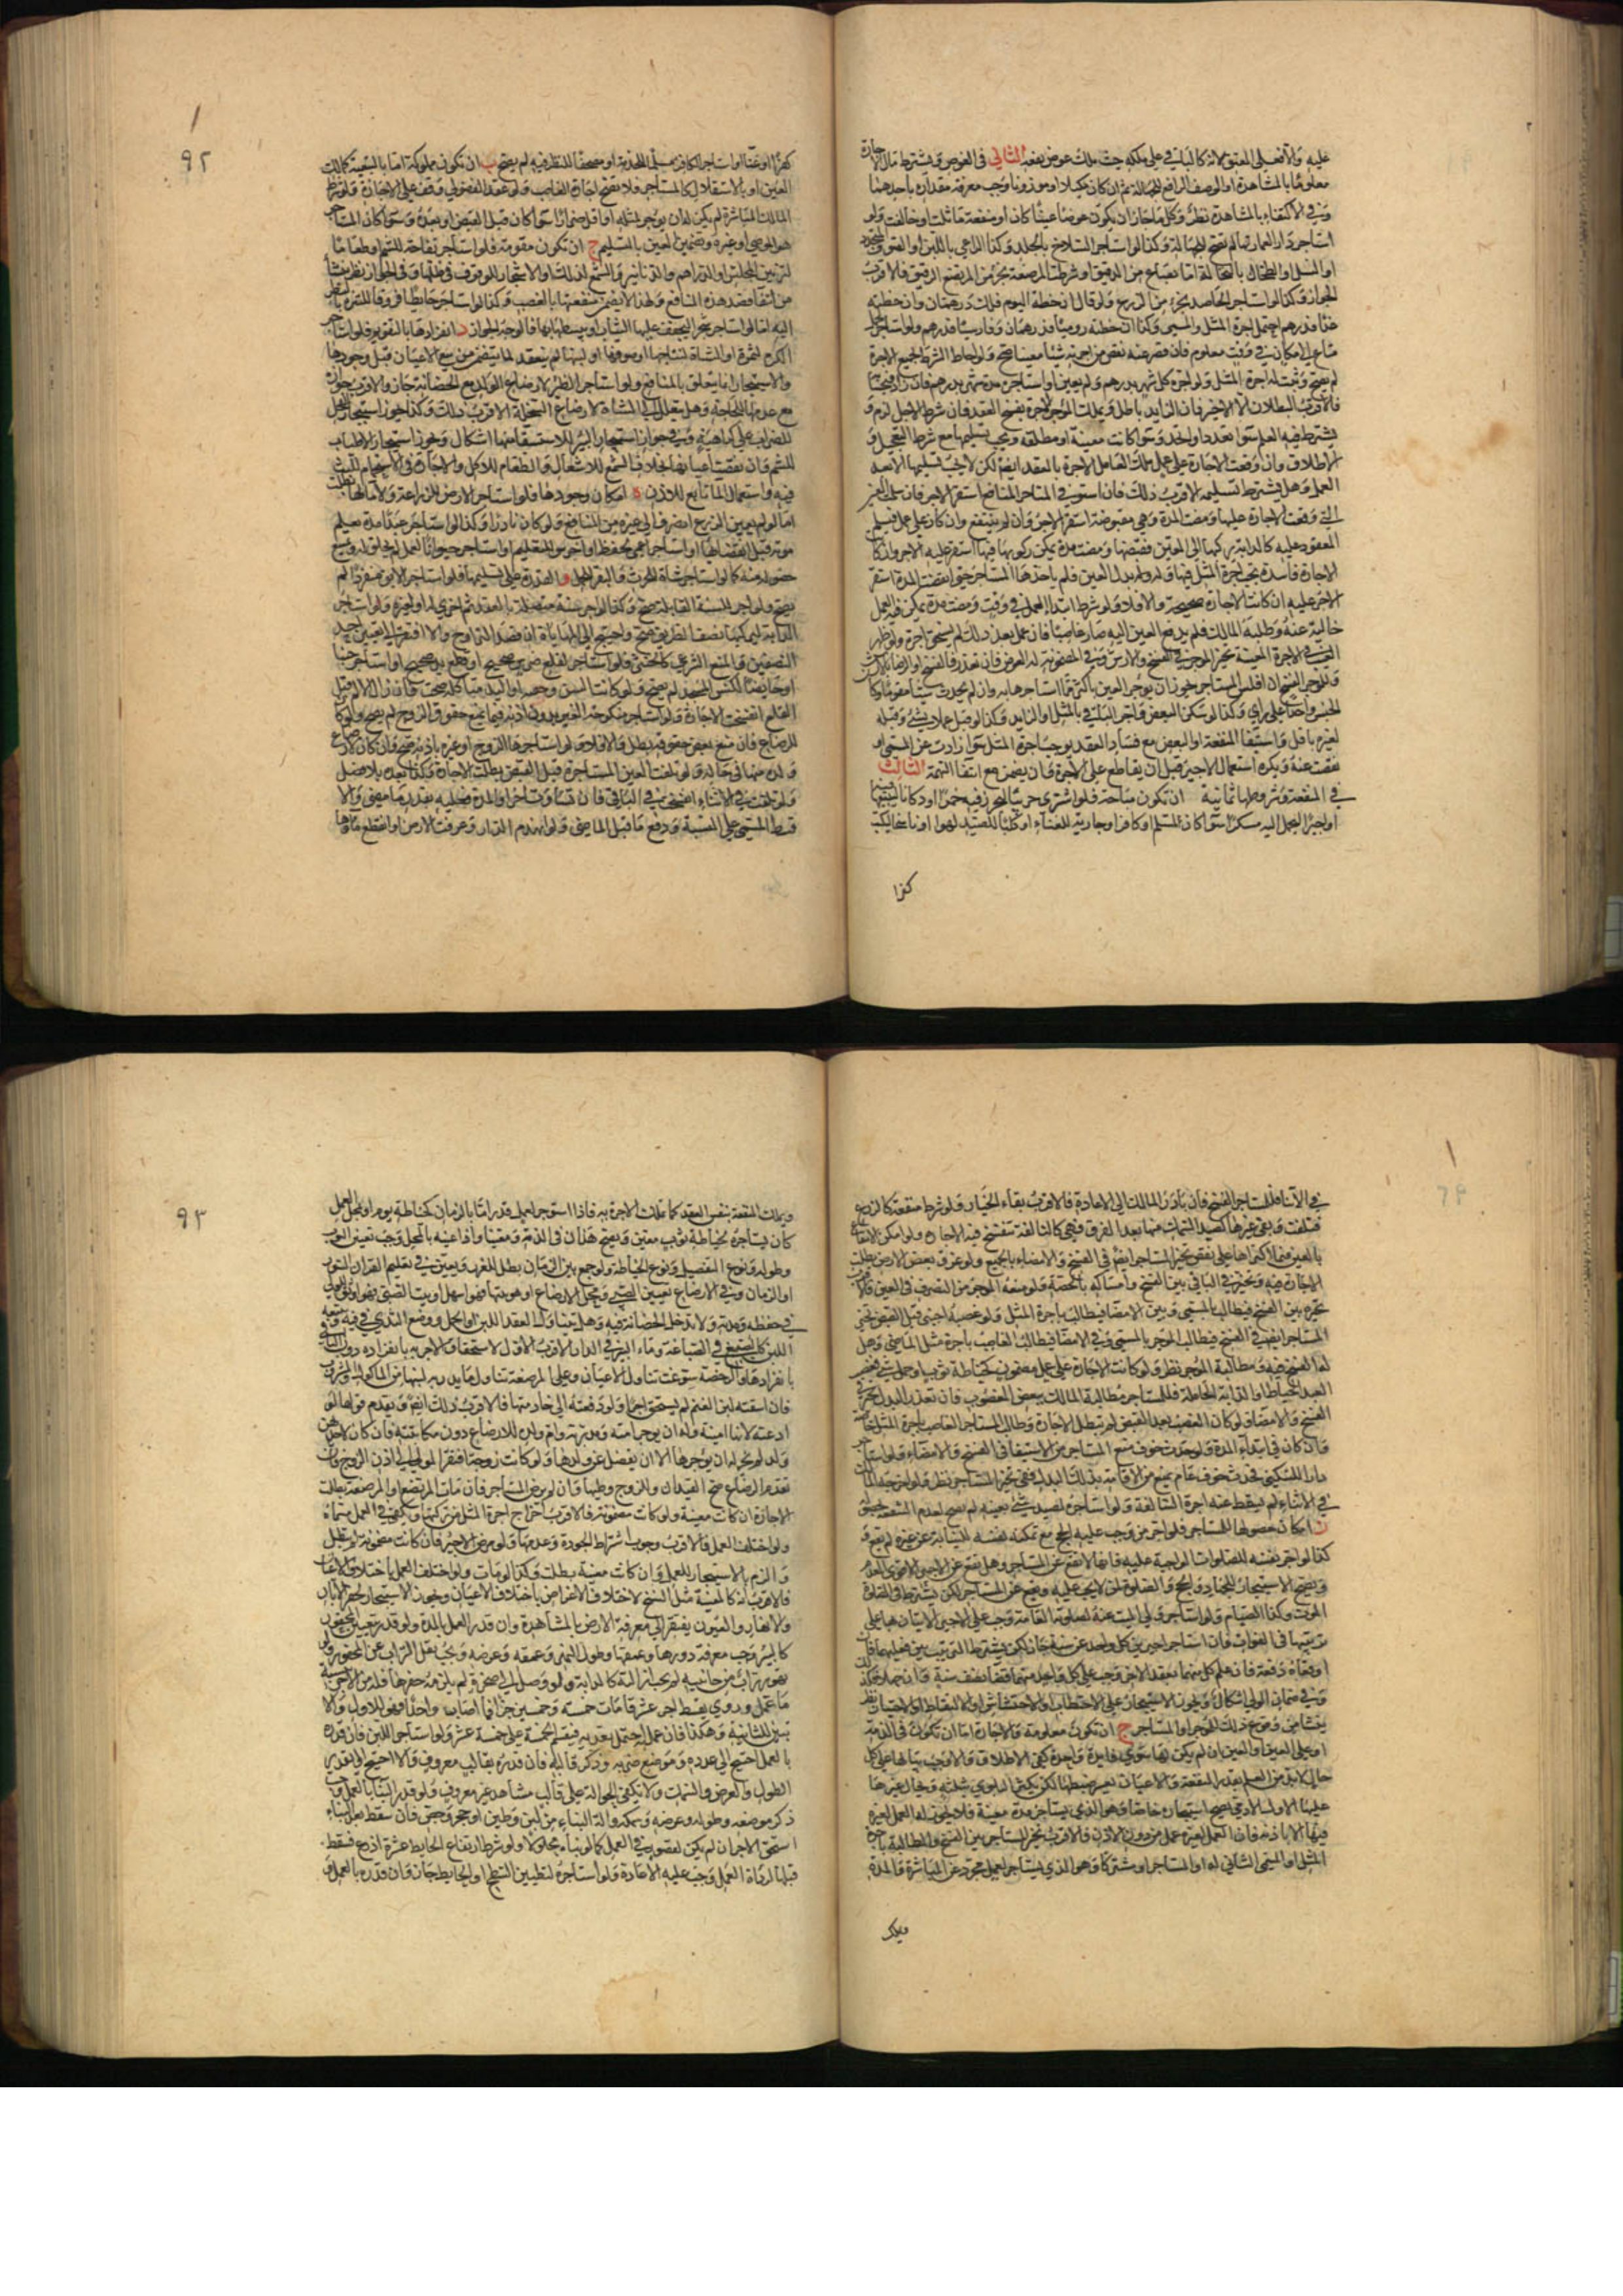 عليه والاقعد الى المعتق لانه كالباقي على ملكه حيث ملك عوض نفعه الثاني في العوض ويشترط في مال الاجارة
معلومًا بالمشاهدة او الوصف الرافع للجهالة ثم ان كان مكيلا او موزونا وجب معرفة مقداره باحدهما
وفي الاكتفاء بالمشاهدة نظر وكل ما جاز ان يكون عوضا عينا كان او منفعة ماثلت او خالفت ولو
استاجر دارا بعمارتها لم يصح للجهالة وكذا لو استاجر السلاخ بالجلد وكذا الراعي باللبن او الصوف المتجدد
او النسل او الطحان بالنخالة اما بصاع من الدقيق او شرط للمرضعة بجزء من المرتضع الرقيق فالاقرب
الجواز وكذا لو استاجر الحاصد بجزء من الزرع ولو قال ان خطته اليوم فلك درهمان وان خطته
غدا فدرهم احتمل اجرة المثل والمسمى وكذا ان خطته روميا فدرهمان وفارسيا فدرهم ولو استاجر لحمل
متاع الى مكان في وقت معلوم فان قصر عنه نقص من اجرته شيئا معينا صح ولو احاط الشرط بجميع الاجرة
لم يصح وثبت له اجرة المثل ولو اجره كل شهر بدرهم ولم يعين او استاجره مدة شهر بدرهم فان زاد فبحسابه
فالاقرب البطلان الا الاخير فان الزايد باطل ويملك الموجر الاجرة بنفس العقد فان شرط الاجل لزم و
يشترط فيه العلم سواء تعدد او اتحد وسواء كانت معينة او مطلقة ويجب تسليمها مع شرط التعجيل و
الاطلاق وان وقعت الاجارة على عمل ملك العامل الاجرة بالعقد ايضا لكن لا يجب تسليمها الا بعد
العمل وهل يشترط تسليمه الاقرب ذلك فان استوفى المستاجر المنافع استقر الاجر فان سلمت العين
التي وقعت الاجارة عليها ومضت المدة وهي مقبوضة استقر الاجر وان لم ينتفع وان كان على عمل فتسلم
المعقود عليه كالدابة يركبها الى المعين فقبضها ومضت مدة يمكن ركوبها فيها استقر عليه الاجر وان كان
الاجارة فاسدة يجب اجرة المثل فيهما ولو بذل العين فلم ياخذها المستاجر حتى انقضت المدة استقر
الاجر عليه ان كانت الاجارة صحيحة والا فلا ولو شرط ابتداء العمل في وقت ومضت مدة يمكن فيه العمل
خالية عنه وطلبه المالك فلم يدفع العين اليه صار غاصبا فان عمل بعد ذلك لم يستحق اجرة ولو ظهر
العيب في الاجرة المعينة تخير الموجر في الفسخ والارش وفي المضمونة له العوض فان تعذر فالفسخ او الرضا بالارش
وللموجر الفسخ ان افلس المستاجر ويجوز ان يوجر العين باكثر مما استاجرها به وان لم يحدث شيئا مقوما وكان
الجنس واحدا على راي وكذا لو سكن البعض واجر الباقي بالمثل او الزايد وكذا لو عمل عملا في شيء وقبله
لغيره باقل واستيفاء المنفعة او البعض مع فساد العقد يوجب اجرة المثل سواء زادت عن المسمى او
نقصت عنه ويكره استعمال الاجير قبل ان يقاطع على الاجرة وان يضمن مع انتفاء التهمة الثالث
في المنفعة وشروطها ثمانية ان تكون مباحة فلو اشترى حربيا ليحرز فيه خمرا او دكانا ليبيعها فيه
او اجيرا ليحمل اليه مسكرا سواء كان لمسلم او كافر او جارية للغناء او كلبا للصيد لهوا او ناسخا ليكتب
كفرا
٩٢
كفرا او غناء او استاجر الكافر مسلما للخدمة او مصحفا للنظر فيه لم يصح ب ان تكون مملوكة اما بالتبعية كمالك
العين او بالاستقلال كالمستاجر فلا تصح اجارة الغاصب ولو عقد الفضولي وقف على الاجازة ولو شرط
المالك المباشرة لم يكن له ان يوجر لمثله او اقل ضررا سواء كان قبل القبض او بعده وسواء كان المستاجر
هو الموجر او غيره وتضمين العين بالتسليم ج ان تكون مقومة فلو استاجر تفاحة للشم او طعاما
لتزيين المجلس او الدراهم والدنانير والشمع لذلك او الاشجار للوقوف في ظلها وفي الجواز نظر ينشأ
من انتفاء قصد هذه المنافع ولهذا لا يضمن منفعتها بالغصب وكذا لو استاجر حائطا مزوقا للتنزه بالنظر
اليه اما لو استاجر شجرا ليجفف عليها الثياب او يبسطها بها فالوجه الجواز د انفرادها بالتقويم فلو استاجر
الكرم لثمرة او الشاة لنتاجها او صوفها او لبنها لم ينعقد لما يتضمن من بيع الاعيان قبل وجودها
والاستيجار انما يتعلق بالمنافع ولو استاجر الظئر لارضاع الولد مع الحضانة جاز والاقرب جوازه
مع عدمها للحاجة وهل يتعدى الى الشاة لارضاع السخلة الاقرب ذلك وكذا يجوز استيجار الفحل
للضراب على كراهية وفي جواز استيجار البئر للاستسقاء منها اشكال ويجوز استيجار الاطياب
للشم وان نقصت اعيانها بخلاف الشمع للاشعال والطعام للاكل والاجارة في الاستحمام للبث
فيه واستعمال الماء تابع للاذن ه امكان وجودها فلو استاجر الارض للزراعة ولا ماء لها بطلت
اما لو لم يعين الزرع انصرف الى غيره من المنافع ولو كان نادرا وكذا لو استاجر عبدا مدة يعلم
موته قبل انقضائها او استاجر اعمى لحفظ او اخرس للتعليم او استاجر حيوانا لعمل لم يخلق له ويمتنع
حصوله منه كما لو استاجر شاة للحرث والبقر للحمل و القدرة على تسليمها فلو استاجر الابق منفردا لم
يصح ولو اجر للسنة القابلة صح وكذا لو اجر سنة متصلة بالعقد ثم اخرى له او لغيره ولو استاجر
الدابة ليركبها نصف الطريق صح واحتيج الى المهاياة ان قصد التراوح والا افتقر الى تعيين احد
النصفين والمنع الشرعي كالحسي فلو استاجر لقلع ضرس صحيح او قطع يد صحيحة او استاجر جنبا
او حائضا لكنس المسجد لم يصح ولو كانت السن وجعه او اليد متاكلة صحت فان زال الالم قبل
القلع انفسخت الاجارة ولو استاجر منكوحة الغير بدون اذنه فيما يمنع حقوق الزوج لم يصح ولو كان
للرضاع فان منع بعض حقوقه بطل والا فلا ولو استاجرها الزوج او غيره باذنه صح وان كان لارضاع
ولده منها في حباله ولو تلفت العين المستاجرة قبل القبض بطلت الاجارة وكذا بعده بلا فصل
ولو تلفت في الاثناء انفسخ في الباقي فان تساوت اجزاء المدة فعليه بقدر ما مضى والا
قسط المسمى على النسبة ودفع ما قبل الماضي ولو انهدم الدار وغرقت الارض او انقطع ماؤها
في الاثناء فللمستاجر الفسخ فان بادر المالك الى الاعادة فالاقرب بقاء الخيار ولو شرط منفعة كالزرع
فتلفت وبقي غيرها كصيد السمك منها بعد الغرق فهي كالتالفة تنفسخ فيه الاجارة ولو امكن الانتفاع
بالعين فيما اكتراها على نقص تخير المستاجر ايضا في الفسخ والامضاء بالجميع ولو غرق بعض الارض بطلت
الاجارة فيه وتخير في الباقي بين الفسخ وامساكه بالحصة ولو منعه الموجر من التصرف في العين فالاقرب
تخيره بين الفسخ فيطالب بالمسمى وبين الامضاء فيطالب باجرة المثل ولو غصبه اجنبي قبل القبض تخير
المستاجر ايضا في الفسخ فيطالب الموجر بالمسمى وفي الامضاء فيطالب الغاصب باجرة مثل الماضي وهل
له الفسخ فيه ومطالبة الموجر نظر ولو كانت الاجارة على عمل مضمون كخياطة ثوب او حمل شيء فغصب
العبد الخياط او الدابة الحاملة فللمستاجر مطالبة المالك بعوض المغصوب فان تعذر البدل تخير في
الفسخ والامضاء ولو كان الغصب بعد القبض لم تبطل الاجارة وطالب المستاجر الغاصب باجرة المثل خاصة
وان كان في ابتداء المدة ولو حدث خوف منع المستاجر من الاستيفاء في الفسخ والامضاء فلو استاجر
دارا للسكنى فحدث خوف عام يمنع من الاقامة بذلك البلد ففي تخير المستاجر نظر ولو اخرجه المالك
في الاثناء لم يسقط عنه اجرة السالفة ولو استاجره لصيد شيء بعينه لم يصح لعدم الثقة بحصوله
ز امكان حصولها للمستاجر فلو اجر من وجب عليه الحج مع تمكنه نفسه للنيابة عن غيره لم يقع و
كذا لو اجر نفسه للصلوات الواجبة عليه فانها لا تقع عن المستاجر وهل تقع عن الاجير الاقوى العدم
ويصح الاستيجار للجهاد والحج والصلوة لمن لا يجب عليه ويقع عن المستاجر لكن يشترط في الصلوة
الموت وكذا الصيام ولو استاجر ولي الميت عنه لصلوته الفائتة وجب على الاجير الاتيان بها على
ترتيبها في الفوات فان استاجر اجيرين كل واحد عن سنة جاز لكن يشترط الترتيب بين فعليهما فان
اوقعاه دفعة فان علم كل منهما بعقد الاخر وجب على كل واحد منهما قضاء نصف سنة وان جهلا فكذلك
وفي ضمان الولي اشكال ويجوز الاستيجار على الاحتطاب او الاحتشاش او الالتقاط او الاحتياز نظر
ينشا من وقوع ذلك للموجر او المستاجر ح ان تكون معلومة والاجارة اما ان تكون في الذمة
او على العين والعين ان لم يكن لها سوى فايدة واحدة كفى الاطلاق والا وجب بيانها وعلى كل
حال لا بد من العلم بقدر المنفعة والاعيان يعسر ضبطها لكن يكثر البلوى بثلثة ويحال غيرها
عليها الاول الآدمي يصح استيجاره خاصا وهو الذي يستاجر مدة معينة فلا يجوز له العمل لغيره
فيها الا باذنه فان عمل لغيره عمل من دون الاذن فالاقرب تخير المستاجر بين الفسخ والمطالبة باجرة
المثل او المسمى الثاني له او المستاجر ومشتركا وهو الذي يستاجر لعمل مجرد عن المباشرة والمدة
ويملك
٩٣
ويملك المنفعة بنفس العقد كما يملك الاجرة به فاذا استوجر لعمل قدر اما بالزمان كخياطة يوم او بمحل العمل
كان يستاجره لخياطة ثوب معين ويصح هذان في الذمة ومعينا واذا عينه بالمحل وجب تعيين الثوب
وطوله ونوع التفصيل ونوع الخياطة ولو جمع بين الزمان بطل للغرر ويتعين في تعليم القران السور
او الزمان وفي الارضاع تعيين الصبي ومحل الارضاع اهو بيتها فهو اسهل او بيت الصبي فهو اوثق للولي
في حفظه ومدته ولا تدخل الحضانة فيه وهل يتناول العقد اللبن او الحمل ووضع الثدي في فيه وتبعه
اللبن كالصبغ في الصباغة وماء البئر في الدار الاقرب الاول لاستحقاق الاجر به بانفراده دون الباقي
بانفرادها والرخصة سوغت تناول الاعيان وعلى المرضعة تناول ما يدر به لبنها من الماكول والمشروب
فان سقته لبن الغنم لم يستحق اجرا ولو دفعته الى خادمتها فالاقرب ذلك ايضا ويقدم قولها لو
ادعته لانها امينة وله ان يوجر امته ومدبرته وام ولده للارضاع دون مكاتبته فان كان لاحدهن
ولد لم يجز له ان يوجرها الا ان يفضل عن ولدها ولو كانت زوجة افتقر المولى الى اذن الزوج وان
تقدم الرضاع صح العقدان وللزوج وطيها وان لم يرض المستاجر فان مات المرتضع او المرضعة بطلت
الاجارة ان كانت معينة ولو كانت مضمونة فالاقرب اخراج اجرة المثل من تركتها ويكفي في العمل مسماه
ولو اختلف العمل فالاقرب وجوب اشتراط الجودة وعدمها ولو مرض الاجير فان كانت مضمونة لم يبطل
والزم بالاستيجار للعمل وان كانت معينة بطلت وكذا لو مات ولو اختلف العمل باختلاف الاعيان
فالاقرب انه كالمعينة مثل النسخ لاختلاف الاغراض باختلاف الاعيان ويجوز الاستيجار لحفر الآبار
والانهار والعيون يفتقر الى معرفة الارض بالمشاهدة وان قدر العمل بالمدة ولو قدر بتعيين المحفور
كالبئر وجب معرفة دورها وعمقها وطول النهر وعمقه وعرضه ويجب نقل التراب عن المحفور ولو
تهور تراب من جانبيه لم يجب ازالته كالدابة ولو وصل الى صخرة لم يلزمه حفرها فله من الاجر بنسبة
ما عمل وروي بقسط اجر عشر قامات خمسة وخمسين جزءا فما اصاب واحدا فهو للاولى والا
ثنين للثانية وهكذا فان عمل به احتمل تعديه فيقسم الخمسة على خمسة عشر ولو استاجر للبن فان قدره
بالعمل احتيج الى عدده وموضع ضربه وذكر قالبه فان قدره بقالب معروف والا احتيج الى تقدير
الطول والعرض والسمك ولا يكفي الحوالة على قالب مشاهد غير معروف ولو قدر البناء بالعمل وجب
ذكر موضعه وطوله وعرضه وسمكه والة البناء من لبن وطين او حجر وجص فان سقط بعد البناء
استحق الاجر ان لم يكن لقصور في العمل كما لو بناه محلولا ولو شرط ارتفاع الحايط عشرة اذرع فسقط
قبلها لرداة العمل وجب عليه الاعادة ولو استاجره لتطيين السطح او الحايط جاز وان قدره بالعمل و